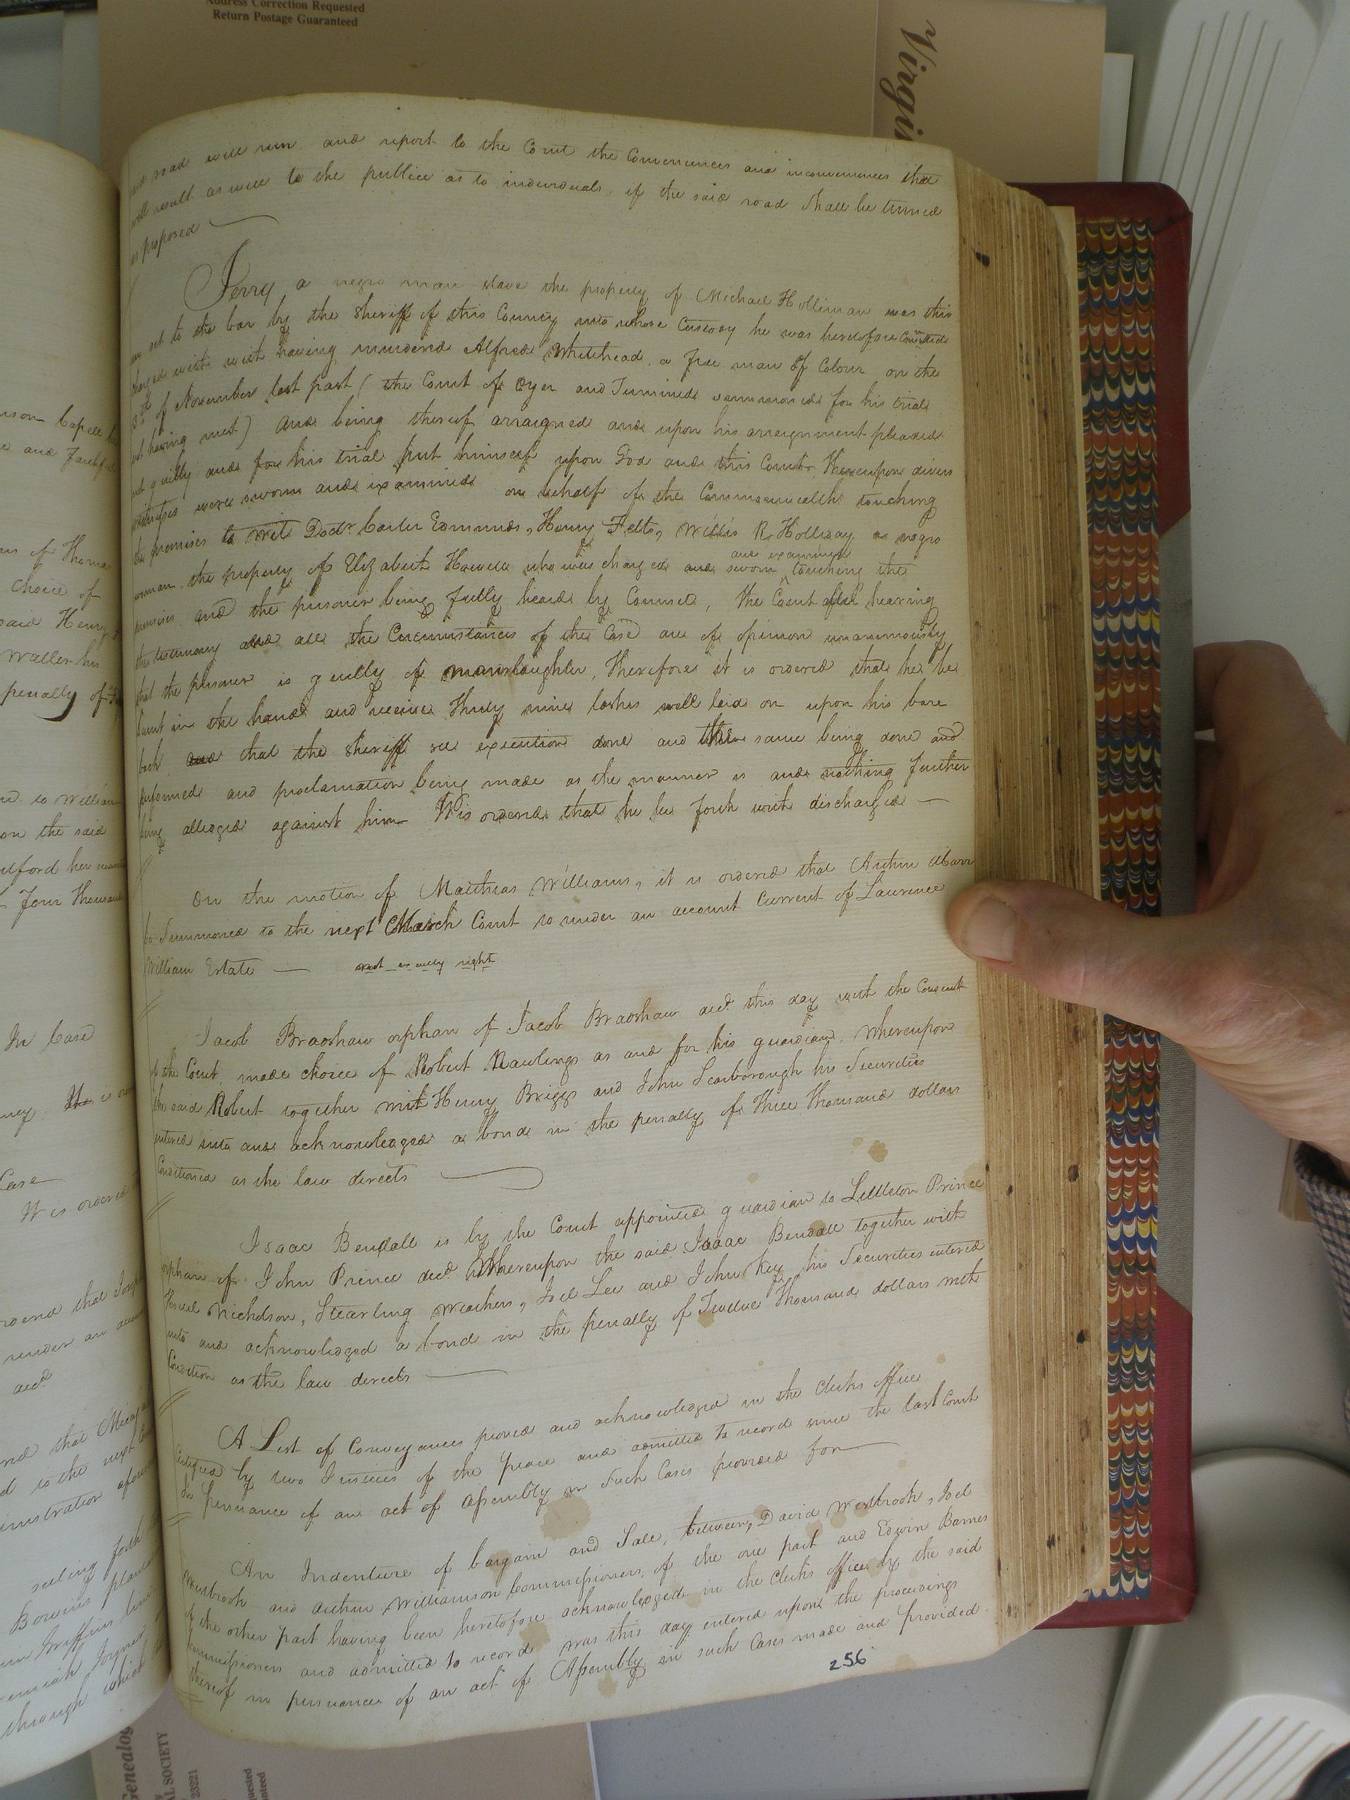 Address Correction Requested
Return Postage Guaranteed
Virgi
said road will run and report to the Court the Conveniences and inconveniences that
will result as well to the publice as to individuals, if the said road shall be turned
as proposed
Jerry a negro man slave the property of Michael Holliman was this
day set to the bar by the Sheriff of this County into whose Custody he was heretofore Committed
charged with having murdered Alfred Whitehead a free man of Colour on the
of November last past (the Court of Oyer and Terminer summoned for his trial
not having met) And being thereof arraigned and upon his arraignment pleaded
not guilty and for his trial put himself upon God and this Court Whereupon divers
witnesses were sworn and examined on behalf of the Commonwealth touching
the premises to wit Doctr Carter Edmunds, Henry Felts, Willis R Holliday a negro
and examined
woman the property of Elizabeth Howell who was charged and sworn touching the
premises and the prisoner being fully heard by Counsel, the Court after hearing
the testimony and all the Circumstances of the Case are of opinion unanimously
that the prisoner is guilty of manslaughter, Therefore it is ordered that he be
burnt in the hand and receive Thirty nine lashes well laid on upon his bare
back and that the Sheriff see execution done and the same being done and
performed and proclamation being made as the manner is and nothing further
being alledged against him It is ordered that he be forth with discharged
On the motion of Matthias Williams, it is ordered that Arthur
be Summoned to the next March Court to render an account Current of Laurence
William Estate
Jacob Bradshaw orphan of Jacob Bradshaw decd this day with the Consent
of the Court, made choice of Robert Rawlings as and for his guardian Whereupon
the said Robert together with Henry Briggs and John Scarborough his Securities
entered into and acknowledged a bond in the penalty of Three Thousand dollars
Conditioned as the law directs
Isaac Bendall is by the Court appointed guardian to Littleton Prince
orphan of John Prince decd Whereupon the said Isaac Bendall together with
Nicholson, Stearling Meachen, Joel Lee and John Key his Securities entered
into and acknowledged a bond in the penalty of Twelve Thousand dollars with
Condition as the law directs
A List of Conveyances proved and acknowledged in the Clerks office
certified by two Justices of the peace and admitted to record since the last Court
In persuance of an act of Assembly in such Cases provided for
An Indenture of bargain and Sale, between, David Westbrook, Joel
Westbrook and Arthur Williamson Commissioners, of the one part and Edwin Barnes
of the other part having been heretofore acknowledged in the Clerks office by the said
Commissioners and admitted to record was this day entered upon the proceedings
thereof in persuance of an act of Assembly in such Cases made and provided
256
of Thomas
Choice of
said Henry
penalty of
to William
on the said
Four Thousand
In Case
Case
It is ordered
decd
to the next
Genealog
AL SOCIETY
23221